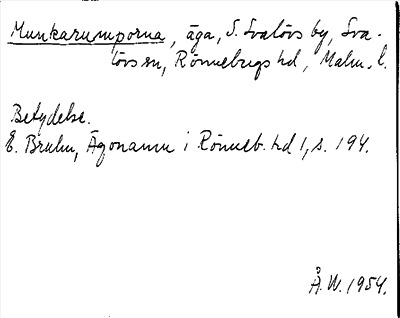 Munkarumporna, äga, S. Svalövs by, Sva-
lövs sn, Rönnebergs hd, Malm. l.
Betydelse.
E. Bruhn, Ägonamn i Rönneb. hd 1, s. 194.
Å. W. 1954.